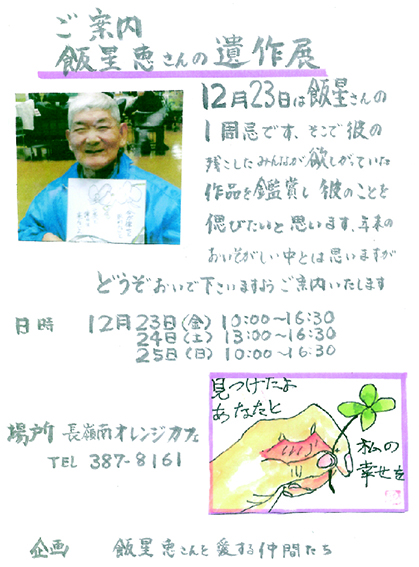 ご案内
飯星恵さんの遺作展
12月23日は飯星さんの
1周忌です、そこで彼の
残こしたみんなが欲しがっていた
作品を鑑賞し彼のことを
偲びたいと思います、年末の
おいそがしい中とは思いますが
どうぞおいで下さいますようご案内いたします
日時 12月23日(金) 10:00〜16:30
24日(土) 13:00〜16:30
25日(日) 10:00〜16:30
見つけたよ
あなたと
私の
幸せを
場所 長嶺南オレンジカフェ
TEL 387-8161
企画 飯星恵さんと愛する仲間たち